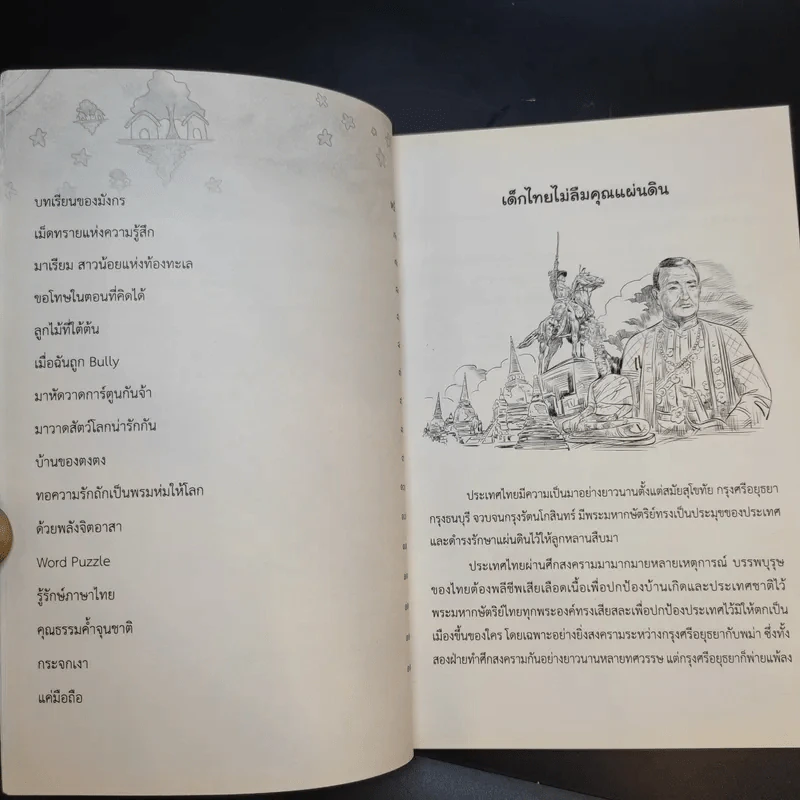 บทเรียนของมังกร
เม็ดทรายแห่งความรู้สึก
มาเรียม สาวน้อยแห่งท้องทะเล
ขอโทษในตอนที่คิดได้
ลูกไม้ที่ใต้ต้น
เมื่อฉันถูก Bully
มาหัดวาดการ์ตูนกันจ้า
มาวาดสัตว์โลกน่ารักกัน
บ้านของตงตง
ทอความรักถักเป็นพรมห่มให้โลก
ด้วยพลังจิตอาสา
Word Puzzle
รู้รักษ์ภาษาไทย
คุณธรรมค้ำจุนชาติ
กระจกเงา
แค่มือถือ
เด็กไทยไม่ลืมคุณแผ่นดิน
ประเทศไทยมีความเป็นมาอย่างยาวนานตั้งแต่สมัยสุโขทัย กรุงศรีอยุธยา
กรุงธนบุรี จวบจนกรุงรัตนโกสินทร์ มีพระมหากษัตริย์ทรงเป็นประมุขของประเทศ
และดำรงรักษาแผ่นดินไว้ให้ลูกหลานสืบมา
ประเทศไทยผ่านศึกสงครามมามากมายหลายเหตุการณ์ บรรพบุรุษ
ของไทยต้องพลีชีพเสียเลือดเนื้อเพื่อปกป้องบ้านเกิดและประเทศชาติไว้
พระมหากษัตริย์ไทยทุกพระองค์ทรงเสียสละเพื่อปกป้องประเทศไว้มิให้ตกเป็น
เมืองขึ้นของใคร โดยเฉพาะอย่างยิ่งสงครามระหว่างกรุงศรีอยุธยากับพม่า ซึ่งทั้ง
สองฝ่ายทำศึกสงครามกันอย่างยาวนานหลายทศวรรษ แต่กรุงศรีอยุธยาก็พ่ายแพ้ลง